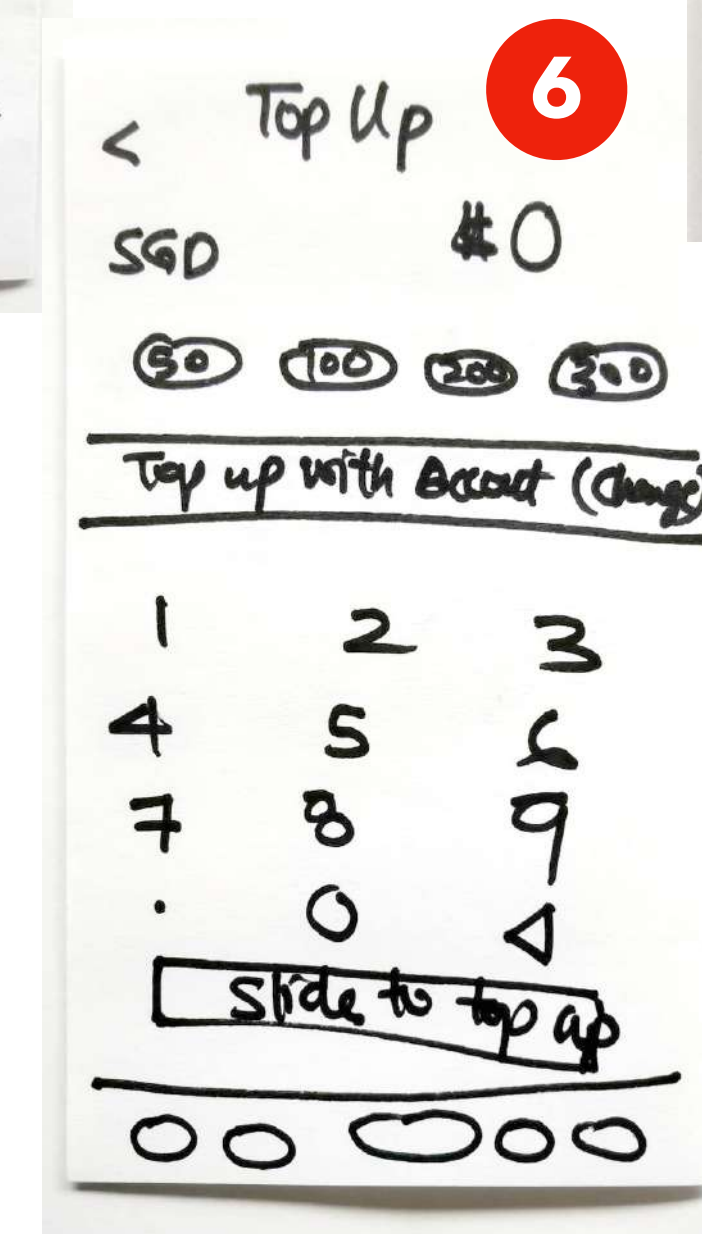 6
< Top Up
SGD $0
50 100 200 300
Top up with Account (Change)
1 2 3
4 5 6
7 8 9
. 0
Slide to top up